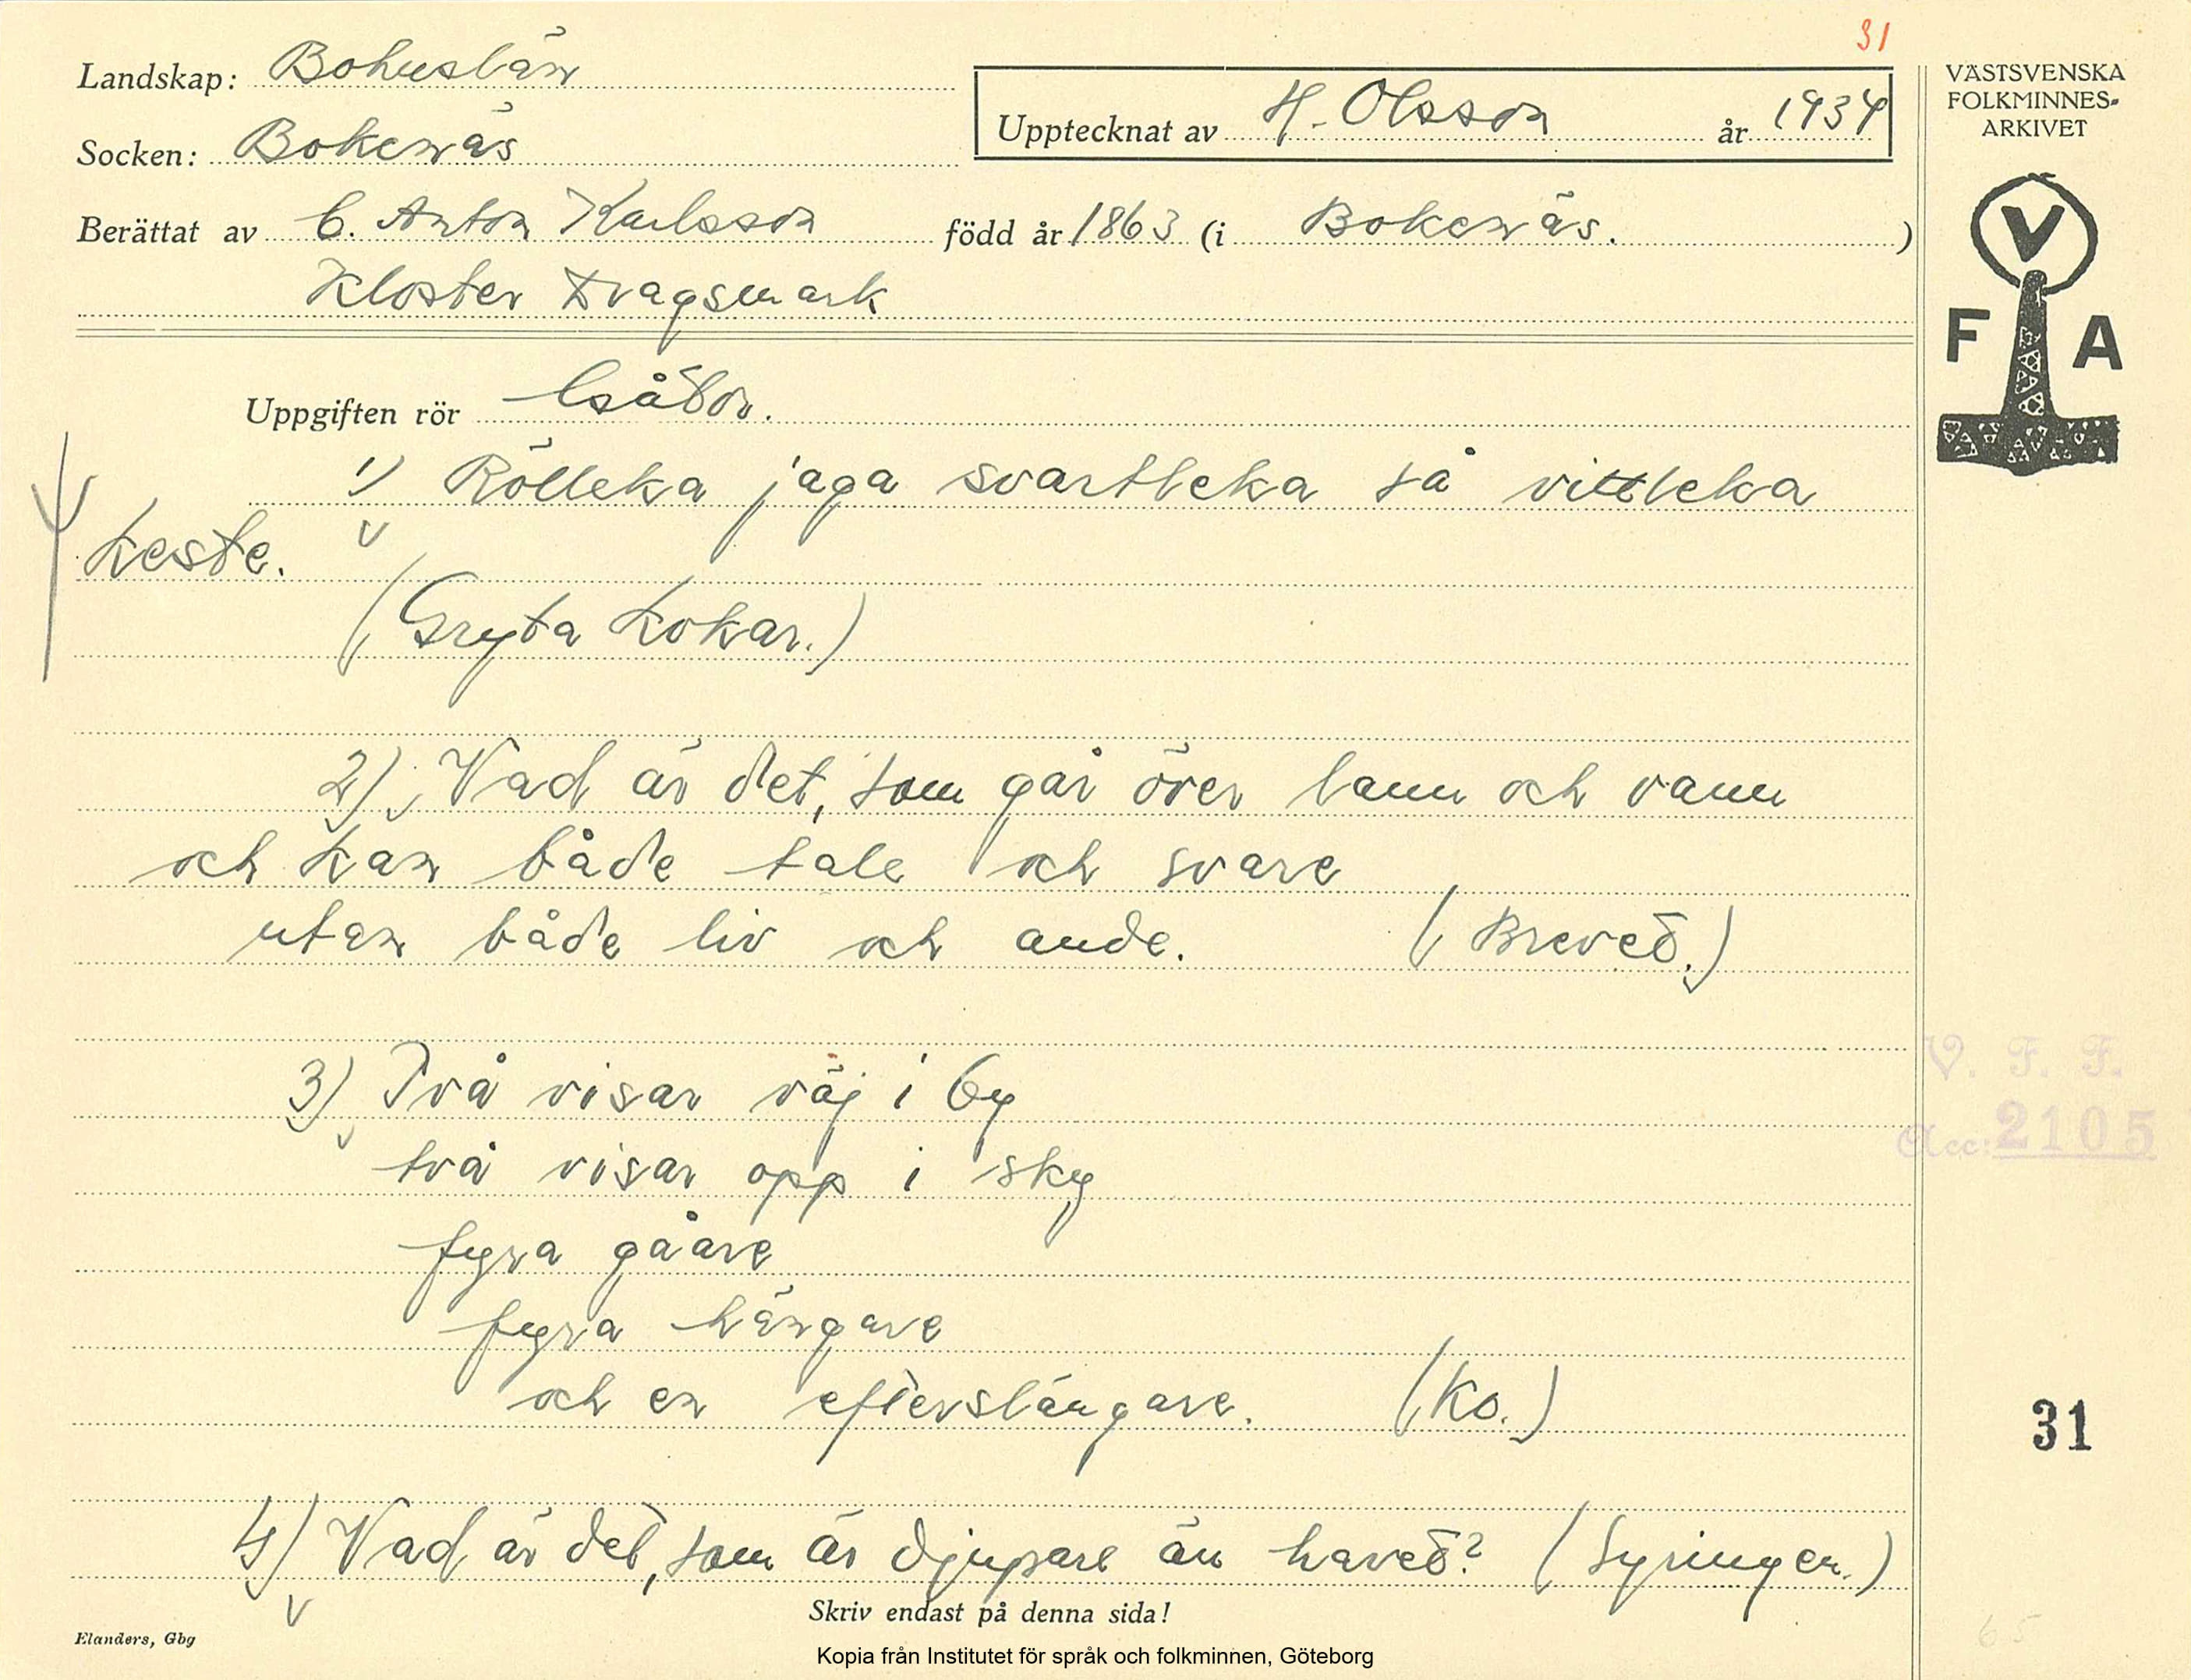 31
Landskap: Bohuslän
Socken: Bokenäs
Upptecknat av H. Olsson år 1934
Berättat av C. Anton Karlsson född år 1863 (i Bokenäs.)
Kloster Dragsmark
VÄSTSVENSKA
FOLKMINNES-
ARKIVET
V
F A
Uppgiften rör Gåtor.
1) Rölleka jaga svartleka så vittleka
keste.
(Gryta kokar.)
2) Vad är det, som går över lann och vann
och kan både tale och svare
utan både liv och ande. (Brevet.)
3) Två visar väj i by
två visar opp i sky
fyra gåare
fyra hängare
och en efterslängare. (Ko.)
4) Vad är det, som är djupare än havet? (Syringen.)
V. F. F.
Acc: 2105
31
65
Skriv endast på denna sida!
Elanders, Gbg
Kopia från Institutet för språk och folkminnen, Göteborg